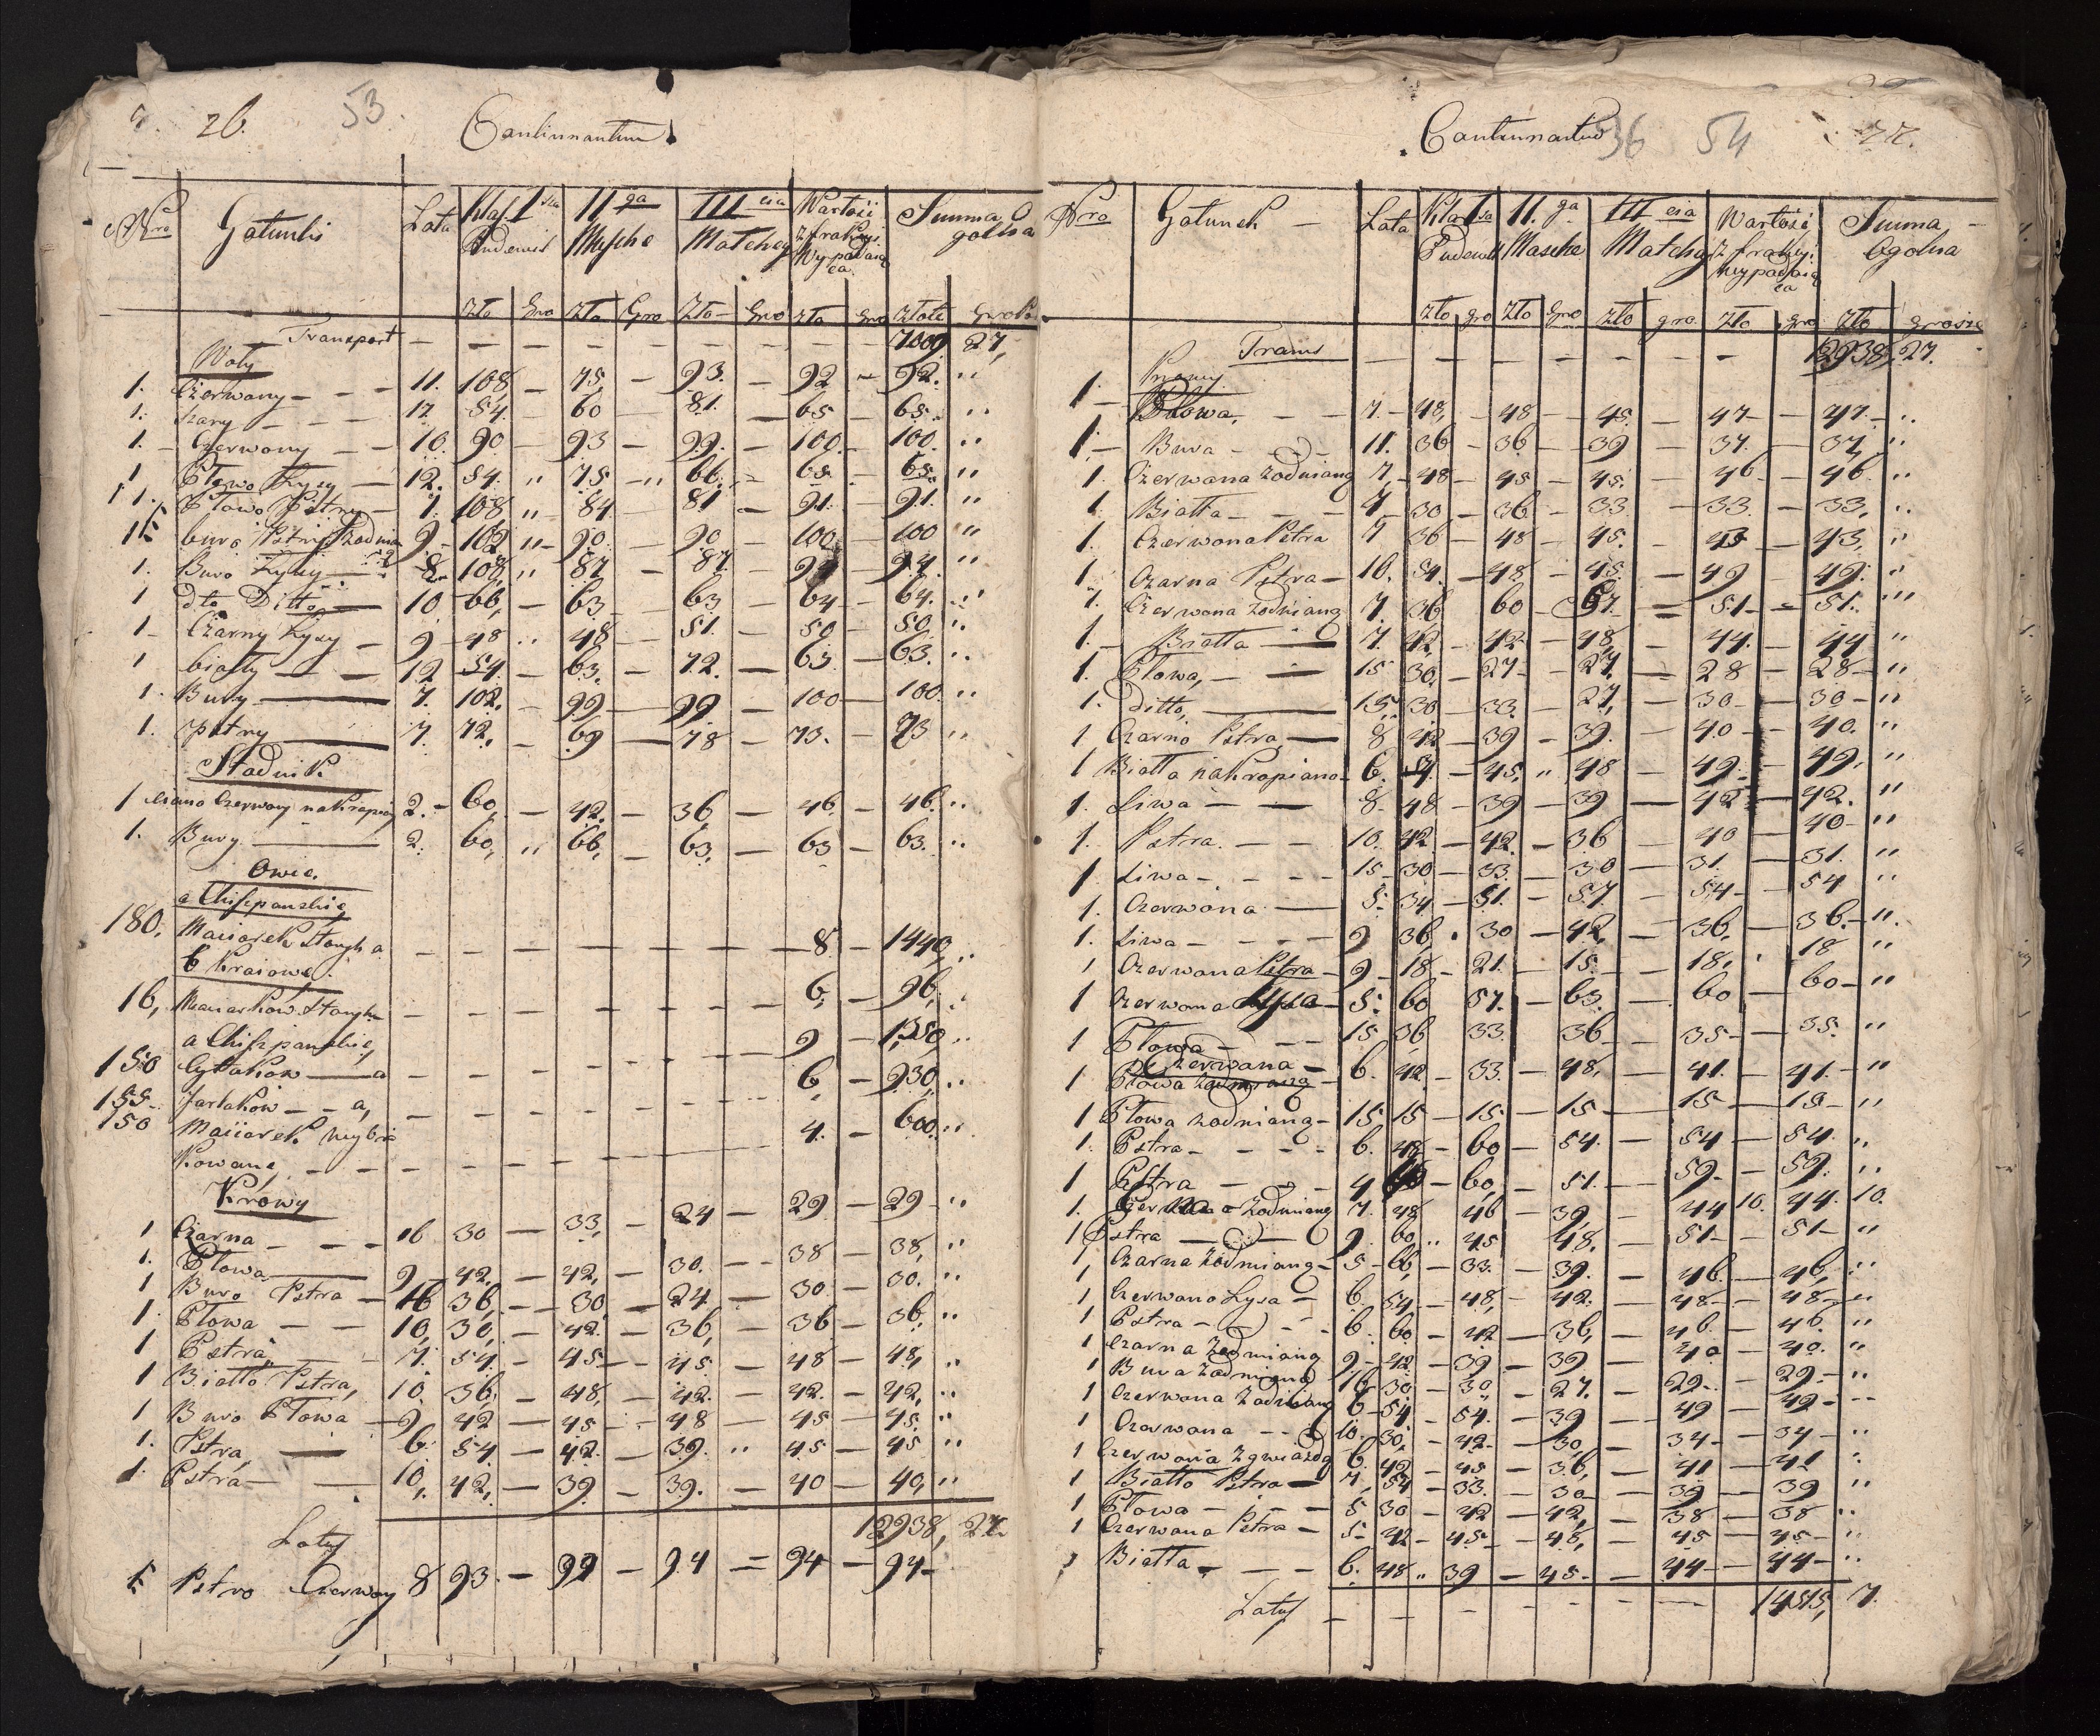 26. 53.
Continuantum
Nro Gatunki Lata Klas. I sza II ga III cia Wartość Summa O
Pudewil Mysche Matchey z frakcyi golna
Wypadaią
ca
Zło Gro Zło Gro Zło Gro Zło Gro Złote Grosze
Transport — — — — — — — 7009 27,
Woły
1. Czerwony — 11. 108, — 75, — 93. — 92 — 92. "
1. Szary — 12 54. — 60 — 81. — 65 — 65. "
1. Czerwony — 10. 90 — 93 — 99. — 100. — 100. "
1 Płowo Łysy — 12. 54. " 75 " 66. — 65 — 65. "
1. Płowo Pstry — 7. 108 " 84 81 — 91. — 91. "
1 buro Pstry Zadnia 9 — 102 " — 90 — 90 — 100 — 100 "
1. Buro Łysy — 8. 108, " 87 — 87. — 94 — 94. "
1 dto Ditto — 10 66, — 63 — 63 — 64 — 64. "
1 Czarny Łysy — 9 — 48 " 48 — 51. — 50 — 50. "
1 biały — 12 54. — 63. — 72. — 63. — 63. "
1. Bury — 7. 102. — 99 — 99 — 100 — 100. "
1. pstry — 7. 72. — 69 — 78 — 73. — 73 "
Stadnik
1 Ciemno Czerwony nakrapiany 2. — 60. — 42. — 36 — 46 — 46. "
1. Bury — 2. 60, " 66, — 63, — 63 — 63. "
Owce.
a Chiszpanskie
180. Maciorek Sztuka — — — — — 8. — 1440, "
b Kraiowe.
16, Maciorkow Sztuk — — — — — 6, — 96, "
a Chiszpanskie,
150 Cytakow — a — — — — — 9 — 1350, "
155. Jarlakow — a, — — — — — 6, — 930, "
150 Maciorek wybra
kowane — — — — — 4. — 600. "
Krowy
1 Czarna — 16 30 — 33, — 24 — 29 — 29 "
1. Płowa — 9 42. — 42, — 30. — 38 — 38, "
1 Buro Pstra — 16 36, — 30 — 24 — 30 — 30. "
1. Płowa — 10, 30, — 42. — 36, — 36 — 36. "
1 Pstra — 7. 54. — 45 — 45 — 48 — 48, "
1 Biało Pstra, 10. 36, — 48, — 42. — 42. — 42, "
1 Buro Płowa — 9, 42 — 45 — 48 — 45 — 45. "
1. Pstra, — 6. 54 — 42. — 39. " 45 — 45 "
1. Pstra — 10, 42, — 39 — 39. — 40 — 40, "
Latus 12938, 27.
1 Pstro Czerwony 8 93. — 99 — 94 — 94 — 94 —
Continuantum 36 54 27.
Nro Gatunek — Lata Klas I sza II. ga III cia Wartość Summa —
Pudewil Masche Matchey z frakcyi Ogolna
wypadaią
ca
Zło gro Zło Gro Zło gro Zło gro Zło grosze
Trans — — — — — — — 12938, 27.
Krowy
1 — Płowa. — 7. — 48, — 48 — 45. — 47 — 47. — "
1. — Bura — 11. 36 — 36 — 39 — 37. — 37, "
1. Czerwana zadniang 7, — 48 — 45 — 45. — 46 — 46. "
1. Biatta — 7 — 30 — 36. — 33 — 33. — 33, "
1. Czerwona Pstra 7 36 — 48 — 45. — 43 — 43, "
1 Czarna Pstra — 10. 54. — 48 — 45. — 49 — 49. "
1. Czerwona zadniang 7. 36 60 — 57. — 51 — 51. "
1. Biatta — 7. 42. — 42 — 48, — 44. — 44 "
1. Płowa, — 15 30. — 27 — 27, — 28 — 28 — "
1. Ditto, — 15, 30 — 33. — 27, — 30 — 30 — "
1 Czarno Pstra, — 8 42 — 39 — 39. — 40 — 40. "
1 Biatta nakrapiana — 6. 54. — 45. " 48 — 49. — 49. "
1. Siwa — 8. 48 — 39 — 39 — 42 — 42. "
1. Pstra. — 10. 42 — 42. — 36 — 40 — 40 — "
1 Siwa — 15 — 30 — 33. — 30 — 31. — 31. "
1. Czerwona — 5. 54 — 51. — 57 — 54 — 54 "
1. Siwa — 9 36, — 30 — 42, — 36, — 36. — "
1. Czerwona Pstra — 9 — 18 — 21. — 15. — 18. — 18 "
1 Czerwona Łysa — 5. 60 57. — 63. — 60 — 60 — "
1 Płowa — 15 36 33. 36 — 35 — 35. "
Czerwana —
1 Płowa zadniang — 6. 42 — 33. — 48, — 41. — 41. — "
1 Płowa zadniang — 15 15 — 15 — 15 — 15 — 15 — "
1. Pstra — 6. 48 — 60 — 54. — 54 — 54. "
1 Pstra — 4 — 60, — 51. — 59. — 59. "
1. Czerwona zadniang 7. 48 46 — 39, — 44 10. 44. 10.
1 Pstra — 9. 60, " 45 48. — 51 — 51 — "
1 Czarna zadniang — 5 — 66, — 33. — 39. — 46. — 46, "
1 Czerwona Łysa — 6. 54, — 48, — 42. — 48 — 48 — "
1 Pstra — 6. 60 — 42 — 36, — 46. — 46. "
1 Czarna Zadniang 9 — 42 — 39 — 39 — 40 — 40. "
1 Bura zadniang 16 30 — 30 — 27. — 29 — 29 — "
1 Czerwona zadniang 6 — 54 — 54. — 39 — 49 — 49 — "
1 Czerwona — 10. 30, — 42 — 30, — 34 — 34 — "
1 Czerwona zgwiazdą 6. 42 — 45 — 36, — 41 — 41 "
1 Biatto Pstra — 7, 54 — 33. — 30 — 39 — 39 "
1 Płowa — 5 30 — 42 — 42, — 38 — 38 "
1 Czerwona Pstra — 5 — 42 — 45 — 48, — 45 — 45 — "
1 Biatta — 6. 48 " 39 — 45 — 44 — 44 — "
Latus — — — — — — 14515, 7.